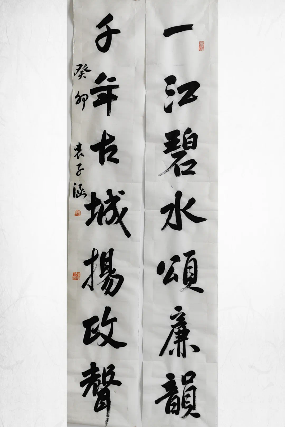 一江碧水頌廉韻
千年古城揚政聲
癸卯 袁子涵